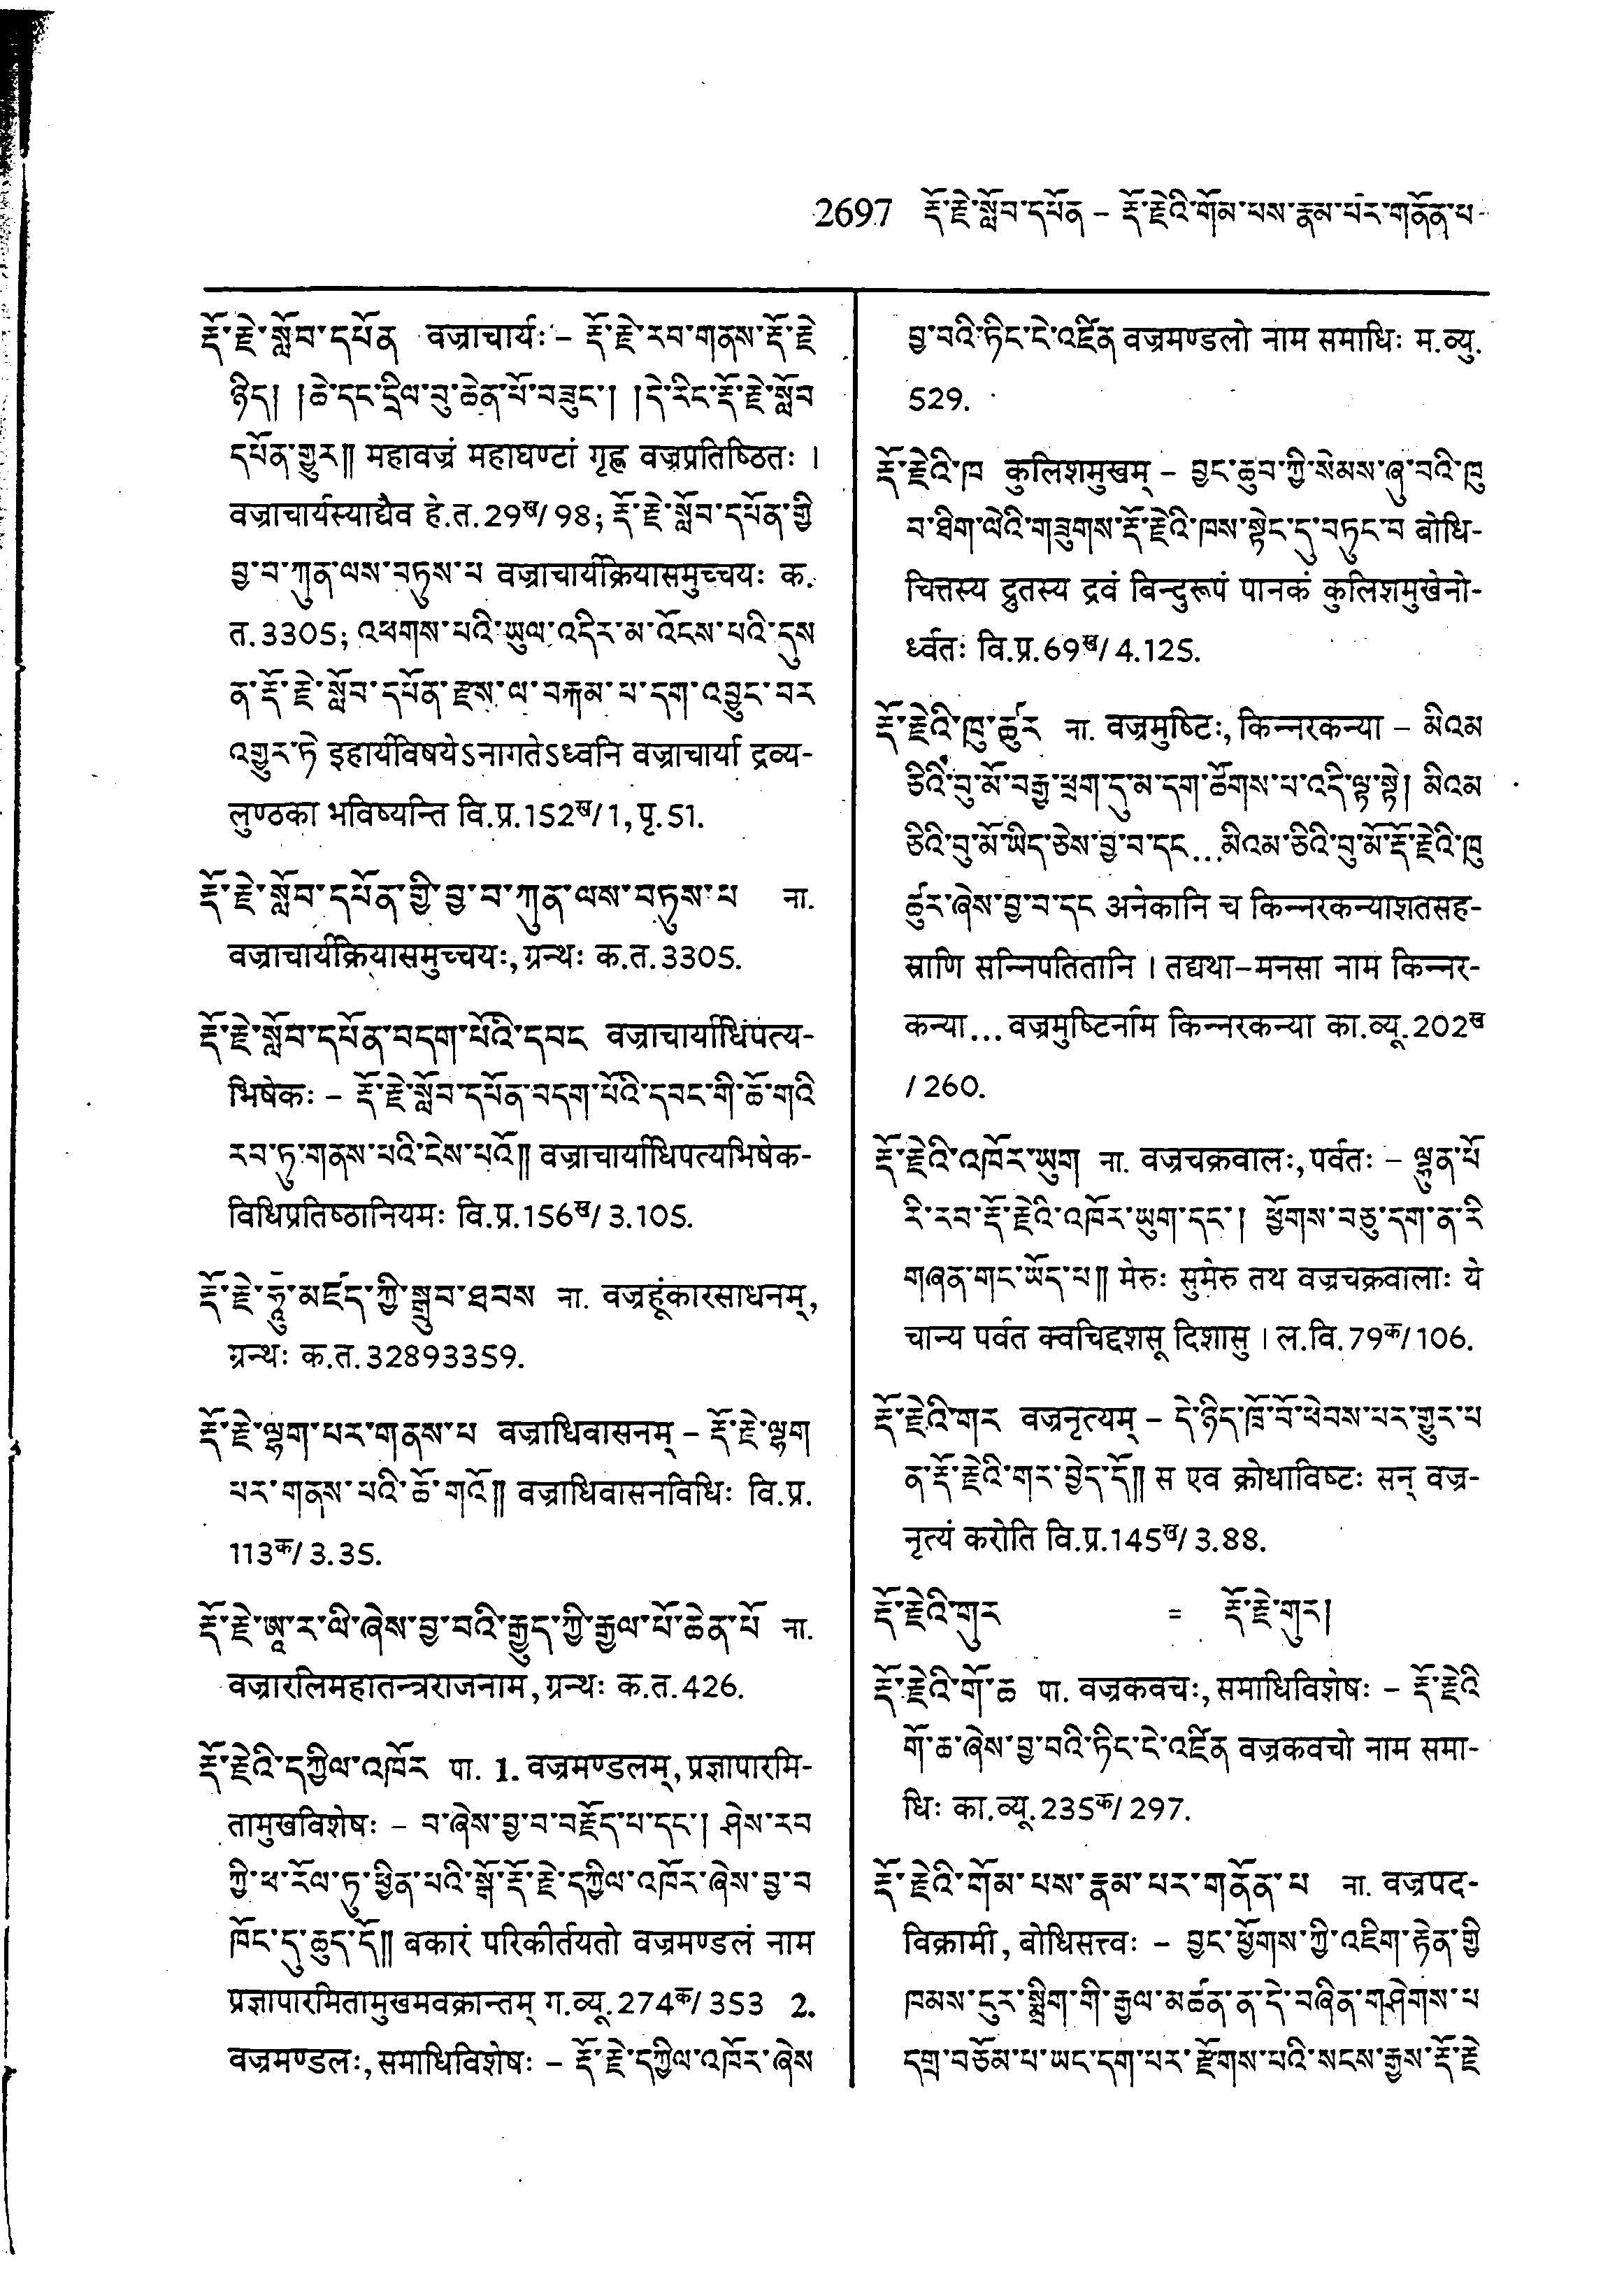 2697 རྡོ་རྗེ་སློབ་དཔོན – རྡོ་རྗེའི་གོམ་པས་རྣམ་པར་གནོན་པ
རྡོ་རྗེ་སློབ་དཔོན वज्राचार्यः – རྡོ་རྗེ་རབ་གནས་རྡོ་རྗེ
ཉིད། །ཆེ་དང་དྲིལ་བུ་ཆེན་པོ་བཟུང་། །དེ་རིང་རྡོ་རྗེ་སློབ
དཔོན་གྱུར༎ महावज्रं महाघण्टां गृह्ण वज्रप्रतिष्ठितः ।
वज्राचार्यस्याद्यैव हे.त.29ख/98; རྡོ་རྗེ་སློབ་དཔོན་གྱི
བྱ་བ་ཀུན་ལས་བཏུས་པ वज्राचार्यक्रियासमुच्चयः क.
त.3305; འཕགས་པའི་ཡུལ་འདིར་མ་འོངས་པའི་དུས
ན་རྡོ་རྗེ་སློབ་དཔོན་རྫས་ལ་བརྐམ་པ་དག་འབྱུང་བར
འགྱུར་ཏེ इहार्यविषयेऽनागतेऽध्वनि वज्राचार्या द्रव्य-
लुण्ठका भविष्यन्ति वि.प्र.152ख/1, पृ.51.
རྡོ་རྗེ་སློབ་དཔོན་གྱི་བྱ་བ་ཀུན་ལས་བཏུས་པ ना.
वज्राचार्यक्रियासमुच्चयः, ग्रन्थः क.त.3305.
རྡོ་རྗེ་སློབ་དཔོན་བདག་པོའི་དབང वज्राचार्याधिपत्य-
भिषेकः – རྡོ་རྗེ་སློབ་དཔོན་བདག་པོའི་དབང་གི་ཆོ་གའི
རབ་ཏུ་གནས་པའི་ངེས་པའོ༎ वज्राचार्याधिपत्यभिषेक-
विधिप्रतिष्ठानियमः वि.प्र.156ख/3.105.
རྡོ་རྗེ་ཧཱུྃ་མཛད་ཀྱི་སྒྲུབ་ཐབས ना. वज्रहूंकारसाधनम्,
ग्रन्थः क.त.32893359.
རྡོ་རྗེ་ལྷག་པར་གནས་པ वज्राधिवासनम् – རྡོ་རྗེ་ལྷག
པར་གནས་པའི་ཆོ་གའོ༎ वज्राधिवासनविधिः वि.प्र.
113क/3.35.
རྡོ་རྗེ་ཨཱ་ར་ལི་ཞེས་བྱ་བའི་རྒྱུད་ཀྱི་རྒྱལ་པོ་ཆེན་པོ ना.
वज्रारलिमहातन्त्रराजनाम, ग्रन्थः क.त.426.
རྡོ་རྗེའི་དཀྱིལ་འཁོར पा. 1. वज्रमण्डलम्, प्रज्ञापारमि-
तामुखविशेषः – བ་ཞེས་བྱ་བ་བརྗོད་པ་དང་། ཤེས་རབ
ཀྱི་ཕ་རོལ་ཏུ་ཕྱིན་པའི་སྒོ་རྡོ་རྗེ་དཀྱིལ་འཁོར་ཞེས་བྱ་བ
ཁོང་དུ་ཆུད་དོ༎ बकारं परिकीर्तयतो वज्रमण्डलं नाम
प्रज्ञापारमितामुखमवक्रान्तम् ग.व्यू.274क/353 2.
वज्रमण्डलः, समाधिविशेषः – རྡོ་རྗེ་དཀྱིལ་འཁོར་ཞེས
བྱ་བའི་ཏིང་ངེ་འཛིན वज्रमण्डलो नाम समाधिः म.व्यु.
529.
རྡོ་རྗེའི་ཁ कुलिशमुखम् – བྱང་ཆུབ་ཀྱི་སེམས་ཞུ་བའི་ཁུ
བ་ཐིག་ལེའི་གཟུགས་རྡོ་རྗེའི་ཁས་སྟེང་དུ་བཏུང་བ बोधि-
चित्तस्य द्रुतस्य द्रवं बिन्दुरूपं पानकं कुलिशमुखेनो-
र्ध्वतः वि.प्र.69ख/4.125.
རྡོ་རྗེའི་ཁུ་ཚུར ना. वज्रमुष्टिः, किन्नरकन्या – མིའམ
ཅིའི་བུ་མོ་བརྒྱ་ཕྲག་དུ་མ་དག་ཚོགས་པ་འདི་ལྟ་སྟེ། མིའམ
ཅིའི་བུ་མོ་ཡིད་ཅེས་བྱ་བ་དང...མིའམ་ཅིའི་བུ་མོ་རྡོ་རྗེའི་ཁུ
ཚུར་ཞེས་བྱ་བ་དང अनेकानि च किन्नरकन्याशतसह-
स्राणि सन्निपतितानि । तद्यथा–मनसा नाम किन्नर-
कन्या... वज्रमुष्टिर्नाम किन्नरकन्या का.व्यू.202ख
/260.
རྡོ་རྗེའི་འཁོར་ཡུག ना. वज्रचक्रवालः, पर्वतः – ལྷུན་པོ
རི་རབ་རྡོ་རྗེའི་འཁོར་ཡུག་དང་། ཕྱོགས་བཅུ་དག་ན་རི
གཞན་གང་ཡོད་པ༎ मेरुः सुमेरु तथ वज्रचक्रवालाः ये
चान्य पर्वत क्वचिद्दशसू दिशासु । ल.वि.79क/106.
རྡོ་རྗེའི་གར वज्रनृत्यम् – དེ་ཉིད་ཁྲོ་བོ་ཕེབས་པར་གྱུར་པ
ན་རྡོ་རྗེའི་གར་བྱེད་དོ༎ स एव क्रोधाविष्टः सन् वज्र-
नृत्यं करोति वि.प्र.145ख/3.88.
རྡོ་རྗེའི་གུར = རྡོ་རྗེ་གུར།
རྡོ་རྗེའི་གོ་ཆ पा. वज्रकवचः, समाधिविशेषः – རྡོ་རྗེའི
གོ་ཆ་ཞེས་བྱ་བའི་ཏིང་ངེ་འཛིན वज्रकवचो नाम समा-
धिः का.व्यू.235क/297.
རྡོ་རྗེའི་གོམ་པས་རྣམ་པར་གནོན་པ ना. वज्रपद-
विक्रामी, बोधिसत्त्वः – བྱང་ཕྱོགས་ཀྱི་འཇིག་རྟེན་གྱི
ཁམས་ངུར་སྨྲིག་གི་རྒྱལ་མཚན་ན་དེ་བཞིན་གཤེགས་པ
དགྲ་བཅོམ་པ་ཡང་དག་པར་རྫོགས་པའི་སངས་རྒྱས་རྡོ་རྗེ